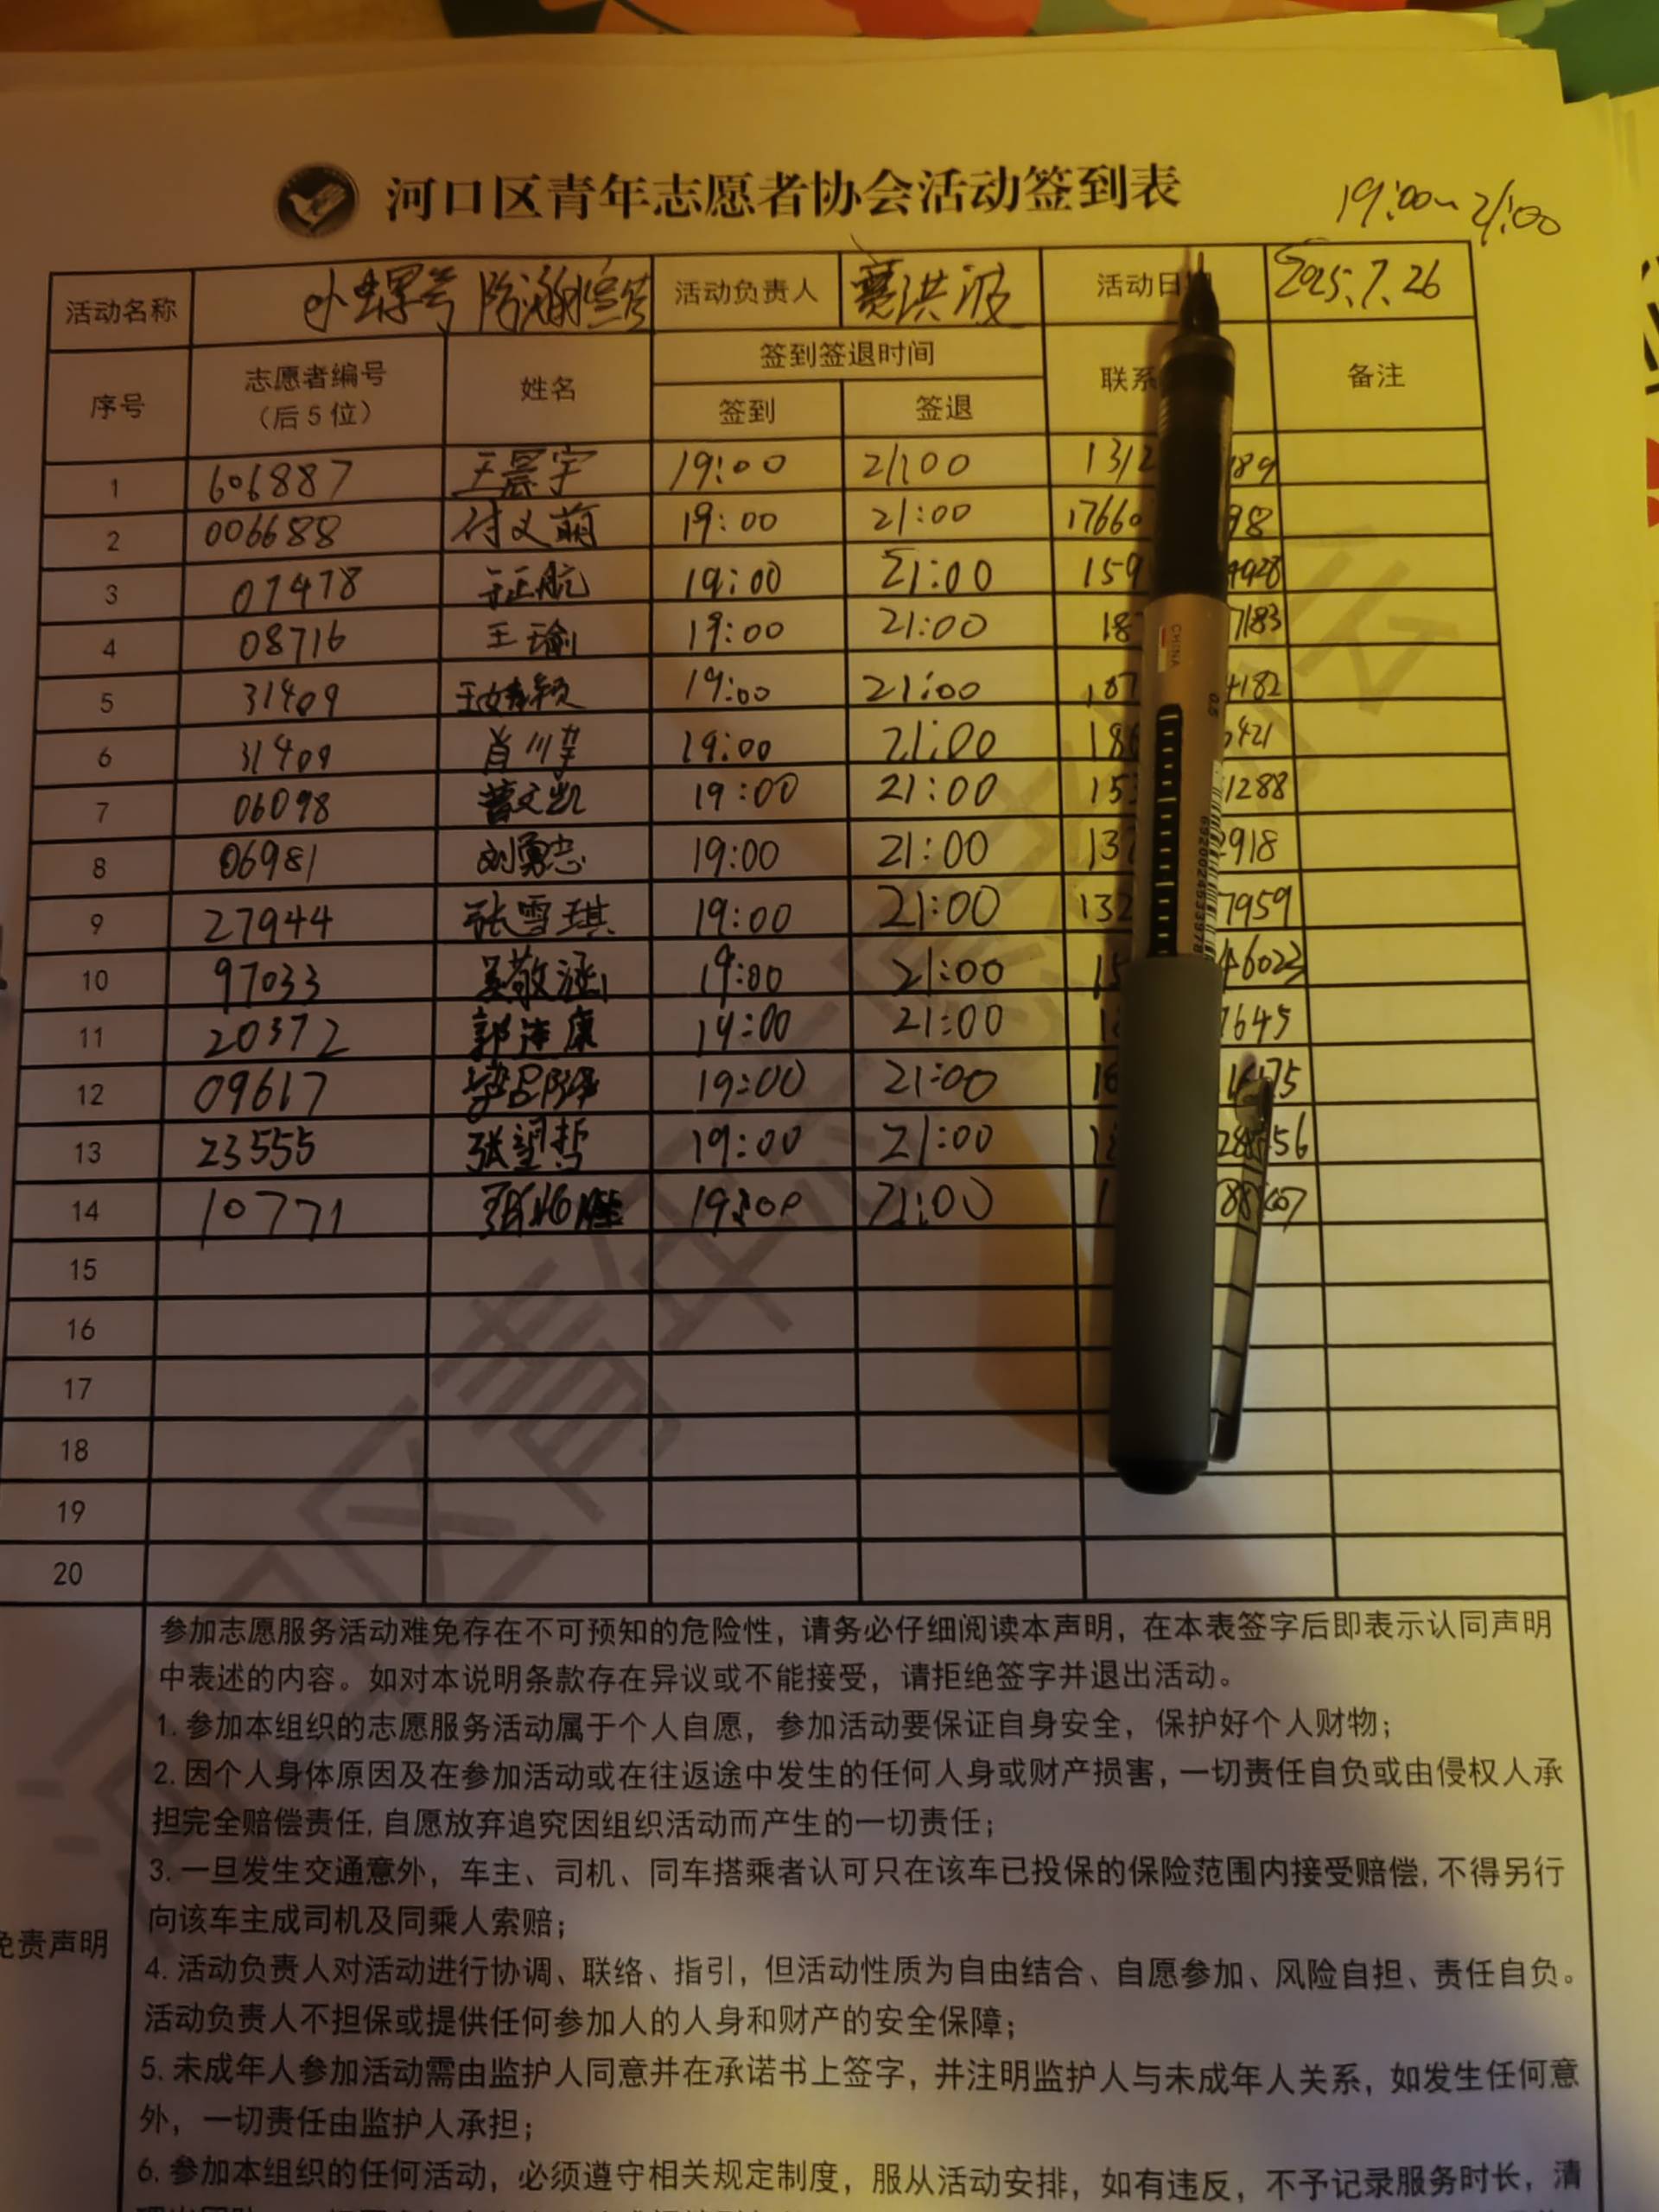 河口区青年志愿者协会活动签到表
19:00~21:00
活动名称 小螺号 防溺水 活动负责人 洪波 活动日期 2025.7.26
序号 志愿者编号（后5位） 姓名 签到签退时间 签到 签退 联系 备注
1 606887 王晨宇 19:00 21:00 1312 189
2 006688 付文萌 19:00 21:00 17660 98
3 07478 于正航 19:00 21:00 159 4928
4 08716 王瑜 19:00 21:00 18 7183
5 31409 王婧颖 19:00 21:00 187 4182
6 31409 肖川 19:00 21:00 186 421
7 06098 曹文凯 19:00 21:00 15 1288
8 06981 刘勇志 19:00 21:00 137 2918
9 27944 张雪琪 19:00 21:00 132 7959
10 97033 吴敬涵 19:00 21:00 15 46023
11 20372 郭康 19:00 21:00 1645
12 09617 19:00 21:00 16 75
13 23555 张望哲 19:00 21:00 56
14 10771 19:00 21:00
15
16
17
18
19
20
CHINA
0.5
6920024533978
免责声明
参加志愿服务活动难免存在不可预知的危险性，请务必仔细阅读本声明，在本表签字后即表示认同声明
中表述的内容。如对本说明条款存在异议或不能接受，请拒绝签字并退出活动。
1. 参加本组织的志愿服务活动属于个人自愿，参加活动要保证自身安全，保护好个人财物；
2. 因个人身体原因及在参加活动或在往返途中发生的任何人身或财产损害，一切责任自负或由侵权人承
担完全赔偿责任, 自愿放弃追究因组织活动而产生的一切责任；
3. 一旦发生交通意外，车主、司机、同车搭乘者认可只在该车已投保的保险范围内接受赔偿, 不得另行
向该车主成司机及同乘人索赔；
4. 活动负责人对活动进行协调、联络、指引，但活动性质为自由结合、自愿参加、风险自担、责任自负。
活动负责人不担保或提供任何参加人的人身和财产的安全保障；
5. 未成年人参加活动需由监护人同意并在承诺书上签字，并注明监护人与未成年人关系，如发生任何意
外，一切责任由监护人承担；
6. 参加本组织的任何活动，必须遵守相关规定制度，服从活动安排，如有违反，不予记录服务时长，清
河口区青年志愿者协会